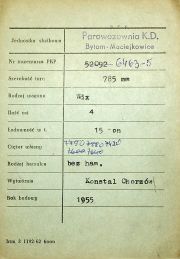 Jednostka służbowa
Parowozownia K.D.
Bytom-Maciejkowice
Nr inwentarza PKP 52092 6463-5
Szerokość toru 785 mm
Rodzaj wagonu Wiz
Ilość osi 4
Ładowność w t. 15 ton
Ciężar własny
Rodzaj hamulca bez ham.
Wytwórnia Konstal Chorzów
Rok budowy 1955